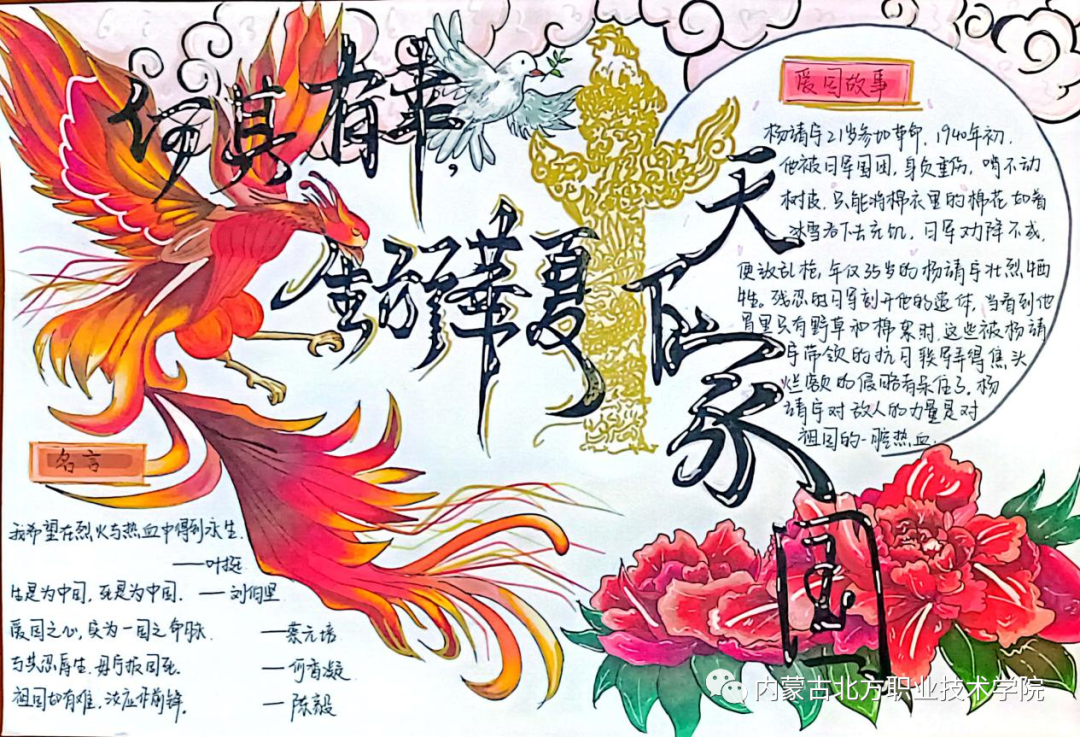 何其有幸，
生于華夏
天下家国
爱国故事
杨靖宇21岁参加革命，1940年初，
他被日军围困，身负重伤，啃不动
树皮，只能将棉衣里的棉花和着
冰雪吞下去充饥，日军劝降不成，
便放乱枪，年仅35岁的杨靖宇壮烈牺
牲。残忍的日军刻开他的遗体，当看到他
胃里只有野草和棉絮时，这些被杨靖
宇带领的抗日联军弄得焦头
烂额的
杨
靖宇对敌人的力量是对
祖国的一腔热血。
名言
我希望在烈火与热血中得到永生。
——叶挺
生是为中国，死是为中国。——刘伯坚
爱国之心，实为一国之命脉。——蔡元培
与其忍辱生，毋宁报国死。——何香凝
祖国如有难，汝应作前锋。——陈毅
内蒙古北方职业技术学院